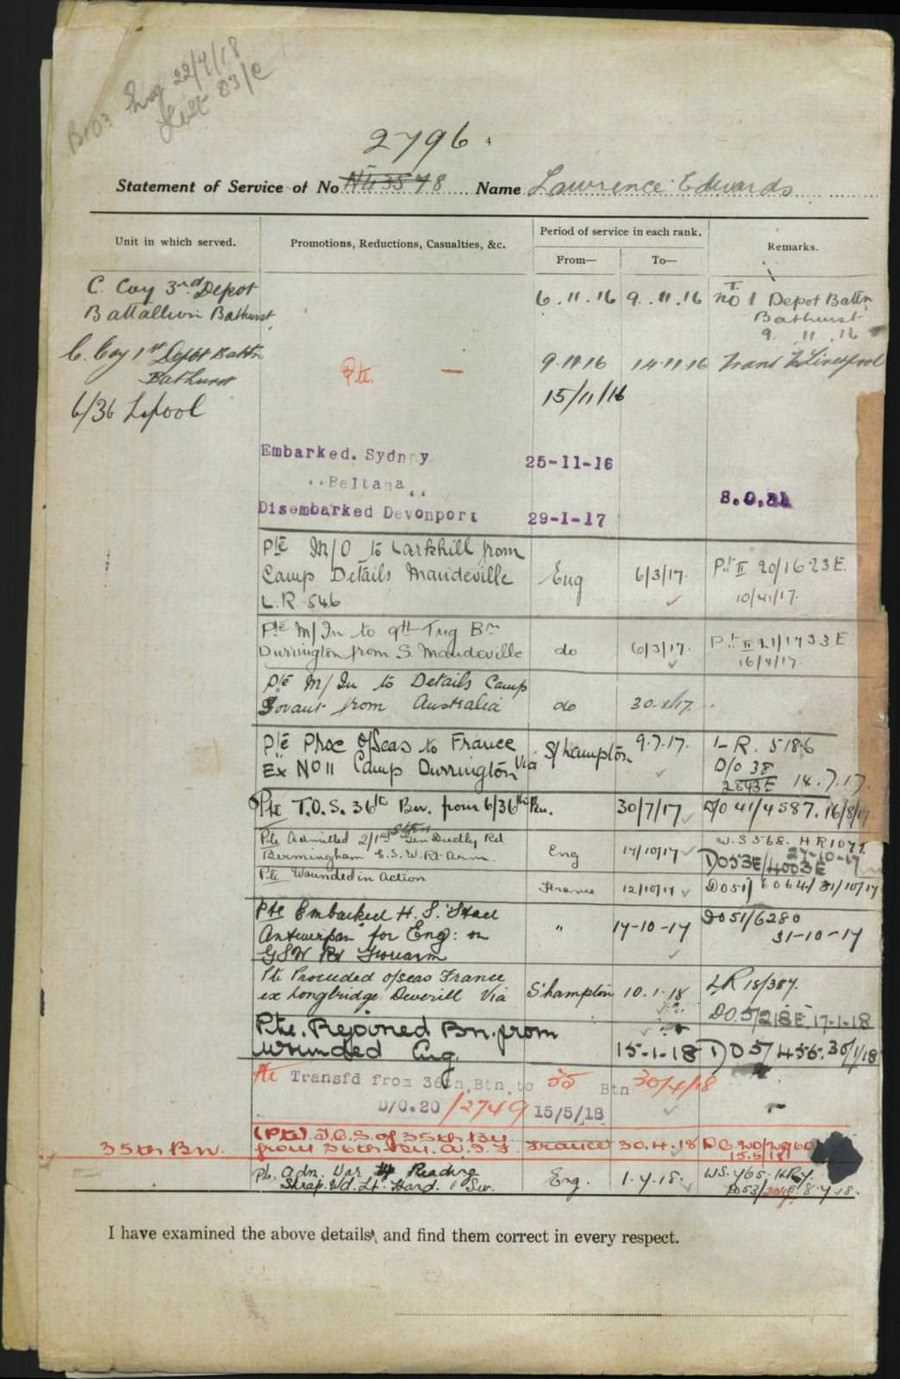 22/7/18
83/C
2796.
Statement of Service of No. Name Lawrence Edwards
Unit in which served. Promotions, Reductions, Casualties, &c. Period of service in each rank. Remarks.
From— To—
C. Coy 3rd Depot 6.11.16 9.11.16 No 1 Depot Battn
Battallion Bathurst Bathurst
9.11.16
C. Coy 1st Depot Battn Pte. — 9.11.16 14.11.16 Trans to Liverpool
Bathurst
6/36 L.pool 15/11/16
Embarked. Sydney 25-11-16
"Beltana"
Disembarked Devonport 29-1-17
Pte M/O to Larkhill from
Camp Details Mandeville Eng 6/3/17. Pt II 20/1623E
L.R 546
Pte M/In to 9th Trng Bn
Durrington from S. Mandeville do 6/3/17.
Pte M/In to Details Camp
Fovant from Australia do
Pte Proc O/Seas to France Via S/hampton 9.7.17. L-R. 5186
Ex No 11 Camp Durrington D/O 38
14.7.17
Pte T.O.S. 36th Bn. from 6/36th Rn. 30/7/17 D/O 41/4587. 16/8/17
Pte Admitted 2/1st Sthn Gen Dudly Rd
Birmingham G.S.W. Rt Arm. Eng DO53E/4003E
27-10-17
Pte Wounded in action France 12/10/17
Pte Embarked H.S. "Stad " 17-10-17 DO51/6280
Antwerpan" for Eng: on 31-10-17
GSW Rt Forearm
Pte Proceeded o/seas France
ex Longbridge Deverill Via S'hampton 10.1.18 LR 18/387.
17-1-18
Pte. Rejoined Bn. from
wounded Eng. 15-1-18 DO5/455. 30/1/18
Pte Transfd from 36th Btn. to 35 Btn 30/4/18
D/O.20/2749 15/5/18
(Pte) T.O.S. of 35th Bn
35th Bn. from 36th Bn. A.I.F. France 30.4.18
Pte adm. War Reading
Shrap. Wd. Lt. Hand. Sev. Eng. 1.7.18. 8.7.18.
I have examined the above details, and find them correct in every respect.